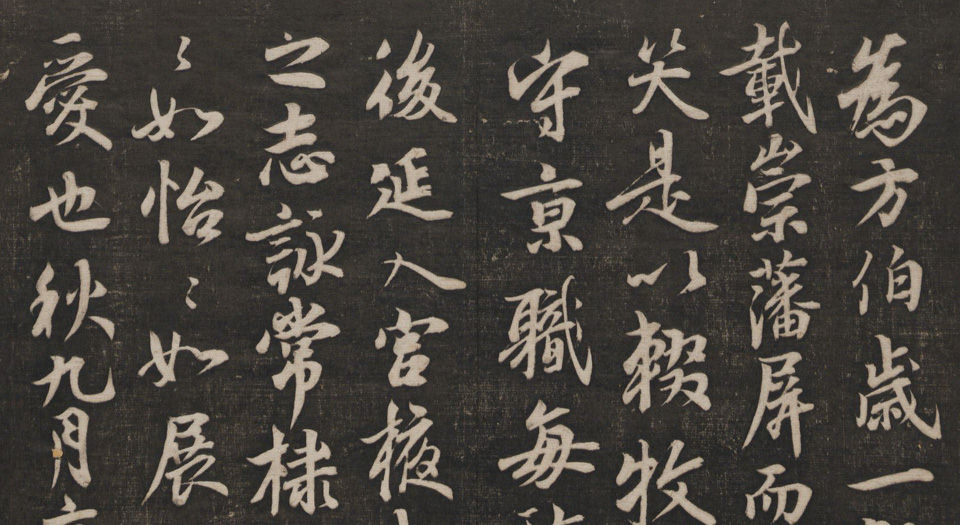 為方伯歲一
載崇藩屏而
笑是以輟牧
守京職每
後延入宮掖
之志詠常棣
〻如怡〻如展
愛也秋九月